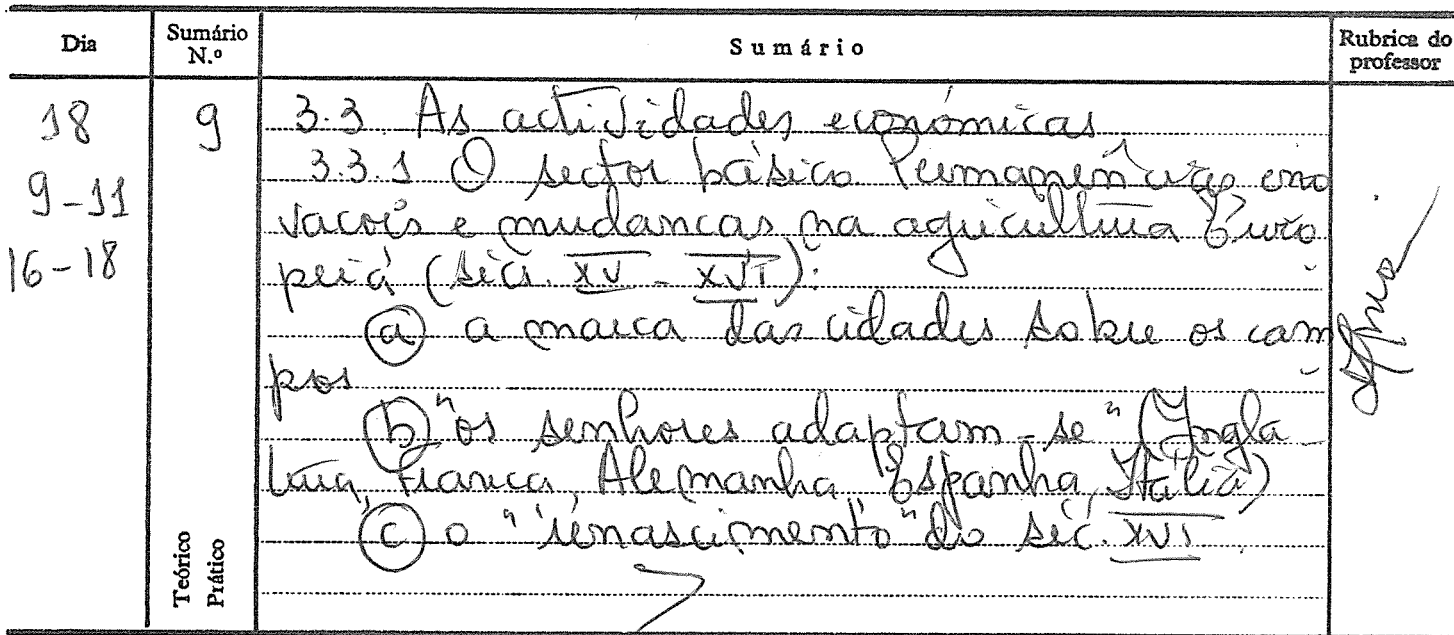 Dia
Sumário N.º
Sumário
Rubrica do professor
18
9
9-11
16-18
3.3. As actividades económicas
3.3.1 O sector básico. Permanências ino
vacões e mudancas na agricultura Euro
peia (sécs. XV - XVI):
(a) a marca das cidades sobre os cam
pos
(b) "os senhores adaptam-se" (Ingla-
terra, Franca, Alemanha, Espanha, Itália)
(c) o "renascimento" do séc. XVI.
Teórico
Prático